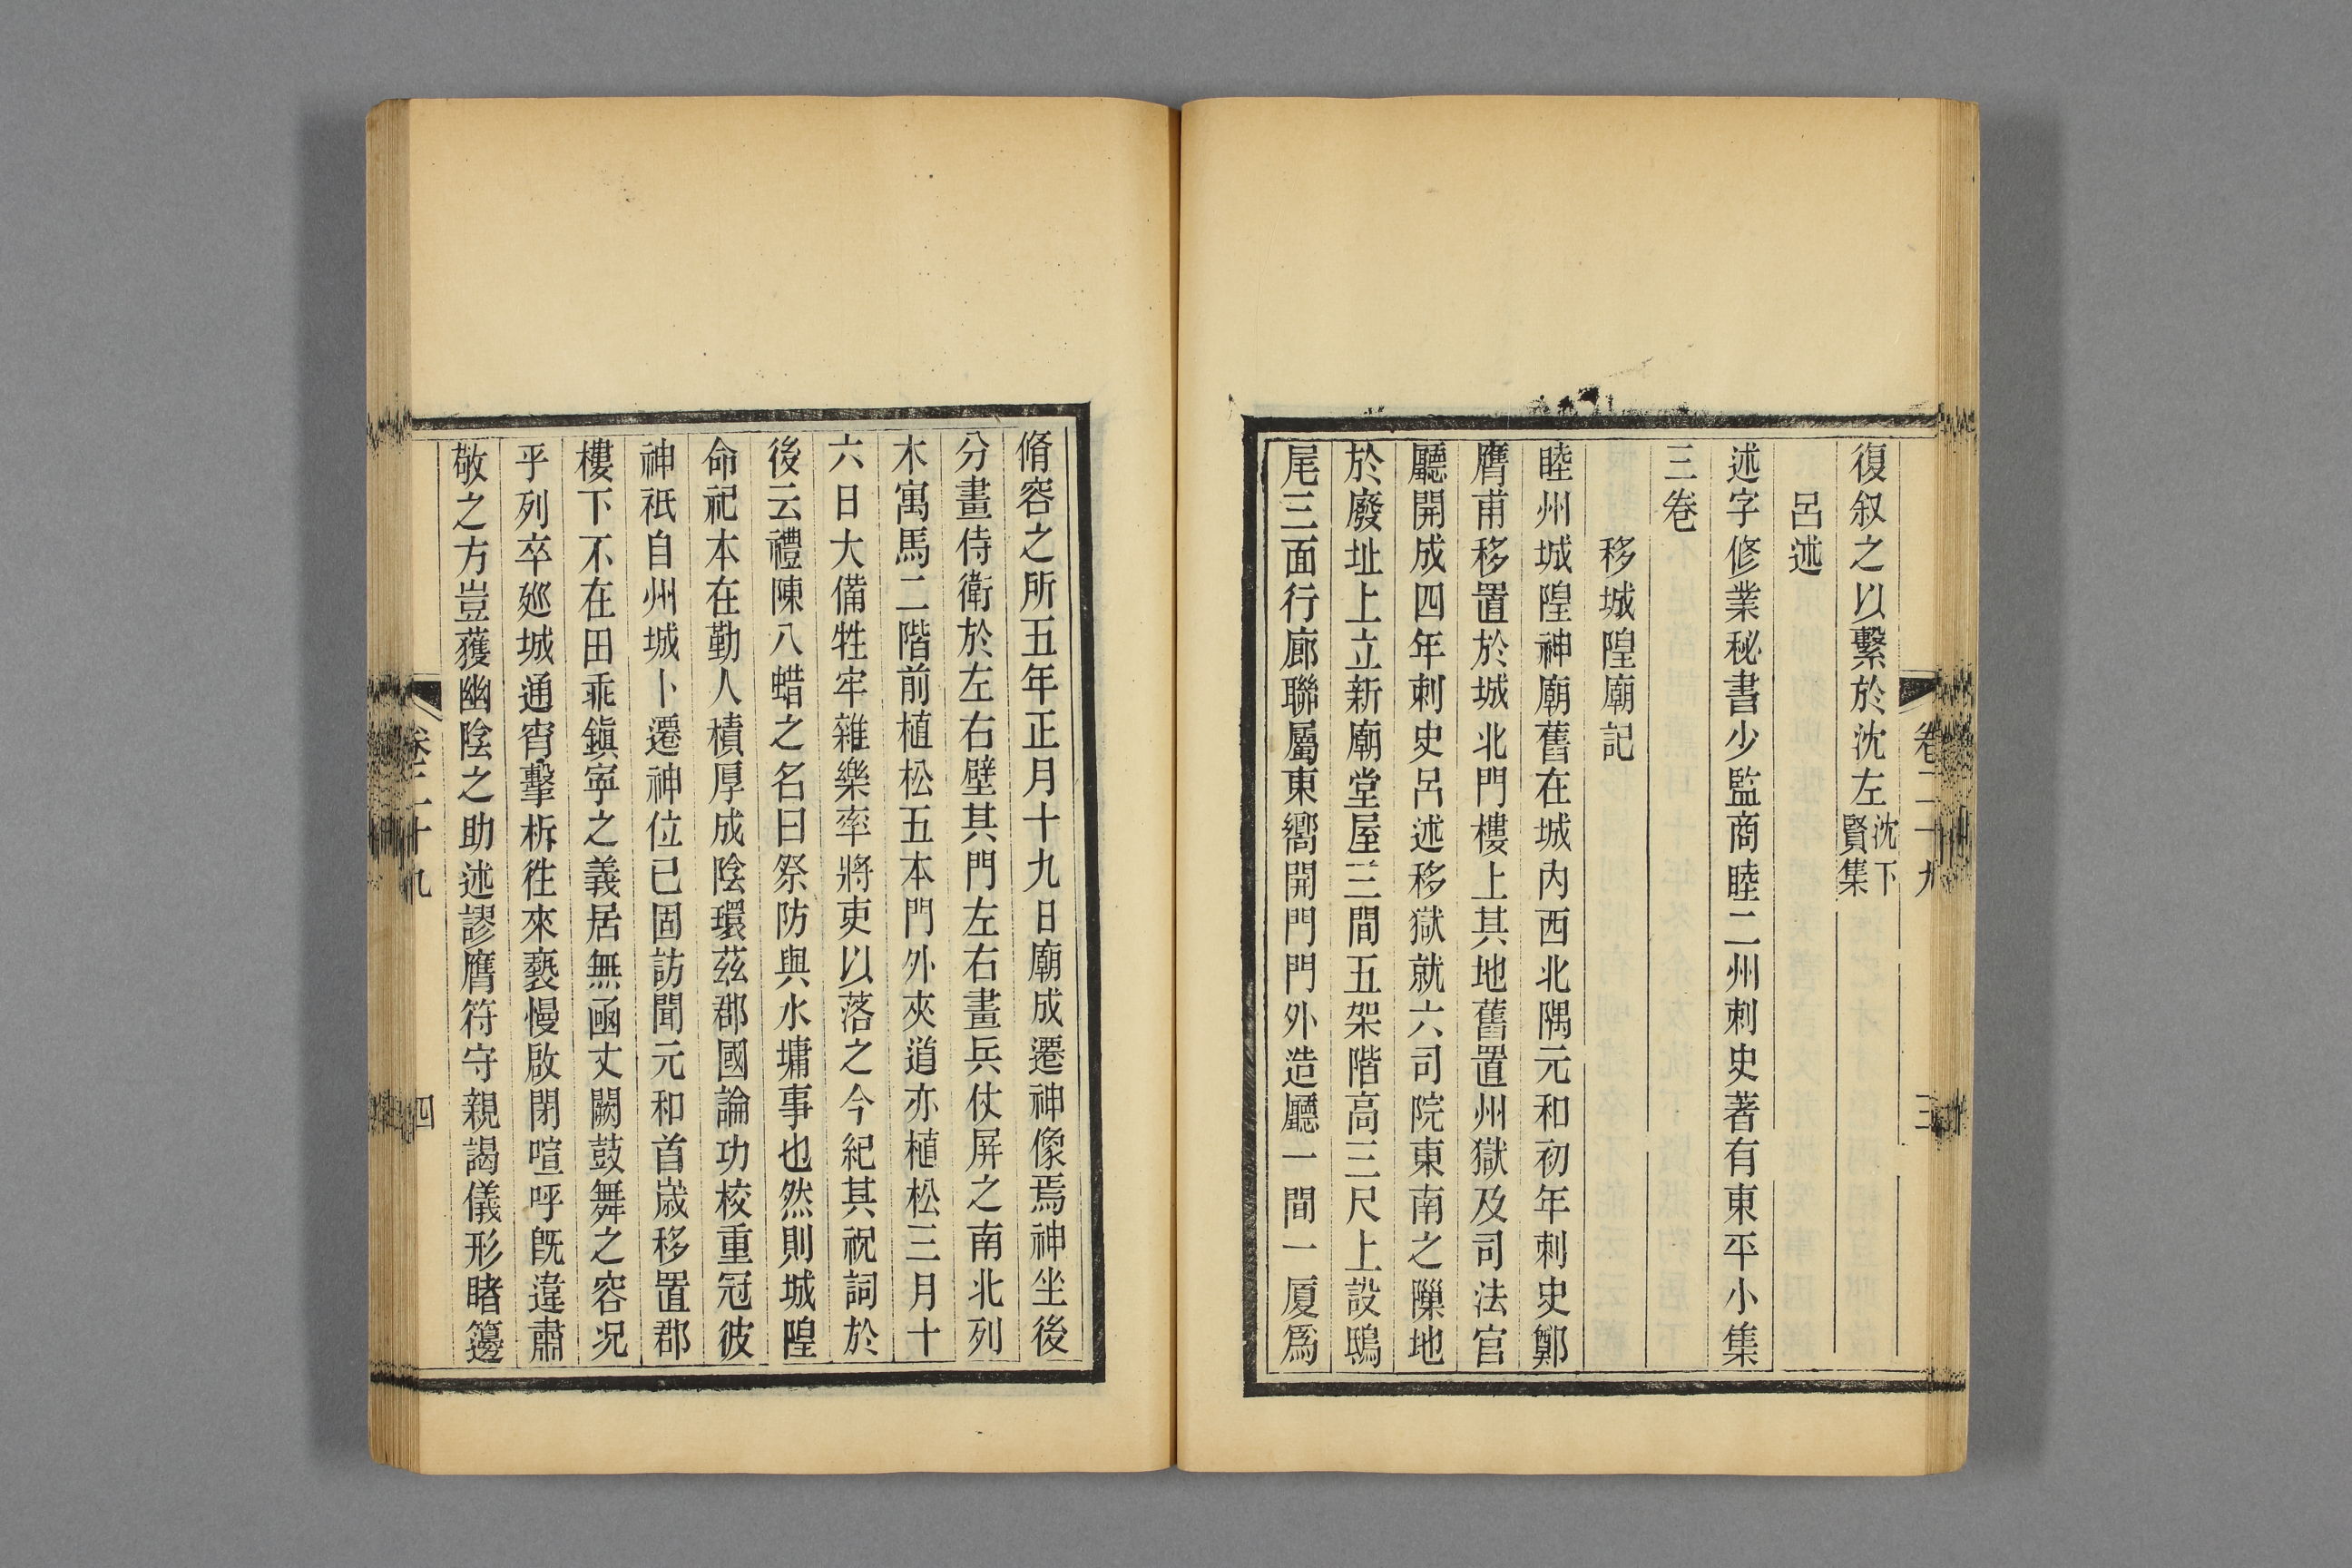 卷二十九
三
復叙之以繫於沈左沈下賢集
呂述
述字修業秘書少監商睦二州刺史著有東平小集
三卷
移城隍廟記
睦州城隍神廟舊在城內西北隅元和初年刺史鄭
膺甫移置於城北門樓上其地舊置州獄及司法官
廳開成四年刺史呂述移獄就六司院東南之隟地
於廢址上立新廟堂屋三間五架階高三尺上設鴟
尾三面行廊聯屬東嚮開門門外造廳一間一厦爲
脩容之所五年正月十九日廟成遷神像焉神坐後
分畫侍衛於左右壁其門左右畫兵仗屏之南北列
木寓馬二階前植松五本門外夾道亦植松三月十
六日大備牲牢雜樂率將吏以落之今紀其祝詞於
後云禮陳八蜡之名曰祭防與水墉事也然則城隍
命祀本在勤人積厚成陰環茲郡國論功校重冠彼
神祇自州城卜遷神位已固訪聞元和首歲移置郡
樓下不在田乖鎭寧之義居無函丈闕鼓舞之容况
乎列卒廵城通宵擊柝徃來褻慢啟閉喧呼旣違肅
敬之方豈獲幽陰之助述謬膺符守親謁儀形睹籩
卷二十九
四